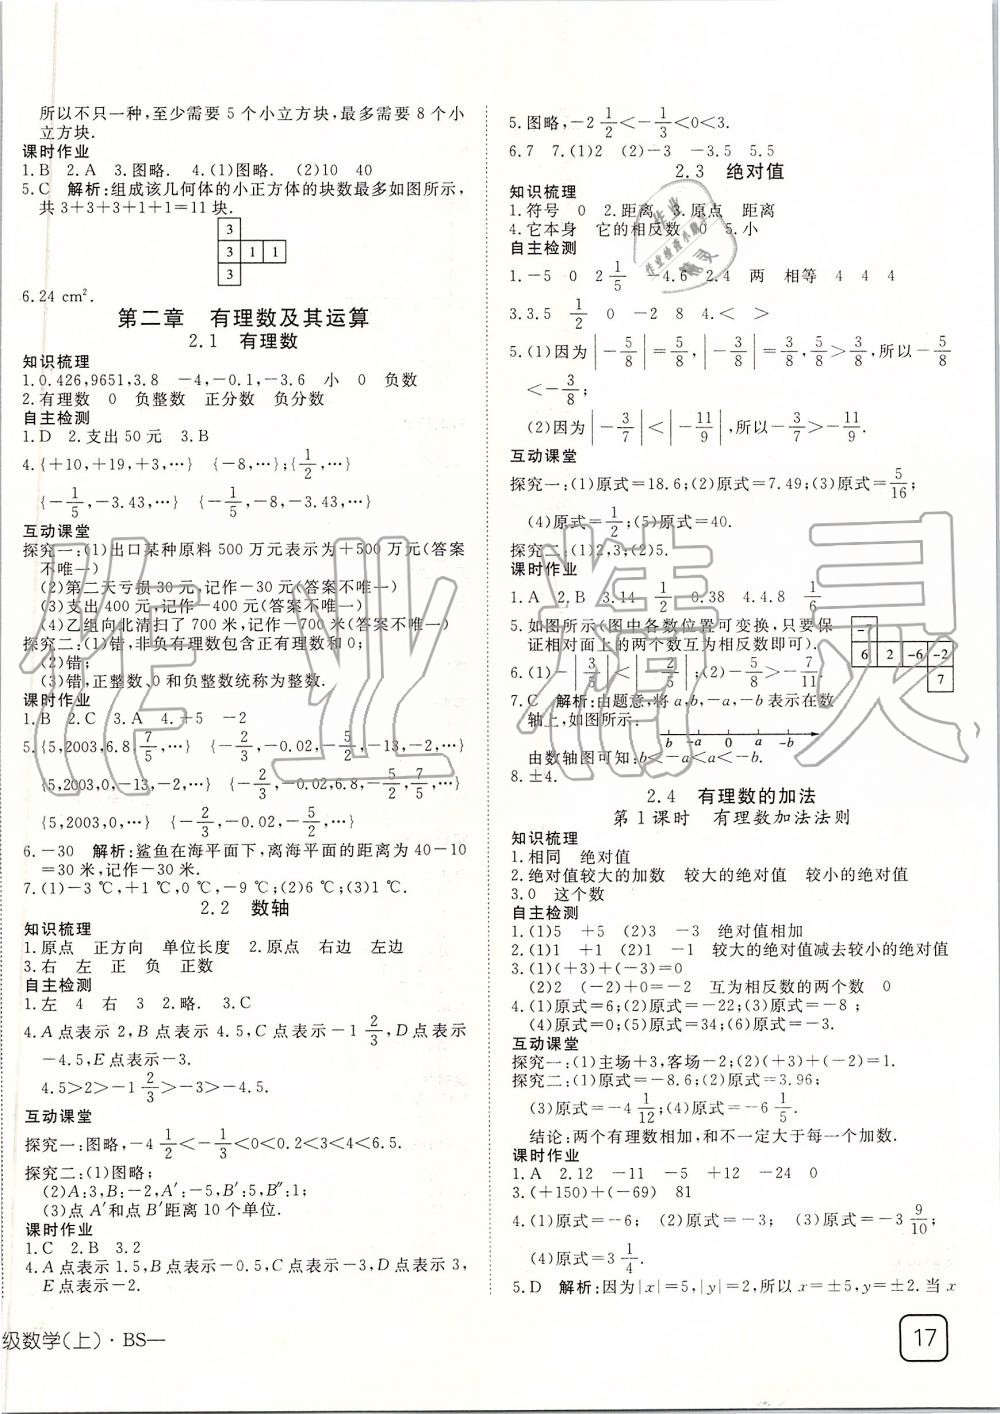 所以不只一种,至少需要 5 个小立方块,最多需要 8 个小
立方块.
课时作业
1.B 2.A 3.图略. 4.(1)图略. (2)10 40
5.C 解析:组成该几何体的小正方体的块数最多如图所示,
共 3+3+3+1+1=11 块.
3
3 1 1
3
6.24 cm².
第二章 有理数及其运算
2.1 有理数
知识梳理
1.0.426,9651,3.8 -4,-0.1,-3.6 小 0 负数
2.有理数 0 负整数 正分数 负分数
自主检测
1.D 2.支出 50 元 3.B
4.{+10,+19,+3,…} {-8,…};{1/2,…}
{-1/5,-3.43,…} {-1/5,-8,-3.43,…}
互动课堂
探究一:(1)出口某种原料 500 万元表示为+500 万元(答案
不唯一)
(2)第二天亏损 30 元,记作-30 元(答案不唯一)
(3)支出 400 元,记作-400 元(答案不唯一)
(4)乙组向北清扫了 700 米,记作-700 米(答案不唯一)
探究二:(1)错,非负有理数包含正有理数和 0;
(2)错;
(3)错,正整数、0 和负整数统称为整数.
课时作业
1.B 2.C 3.A 4.+5 -2
5.{5,2003,6.8,7/5,…} {-2/3,-0.02,-5/5,-13,-2,…}
{5,2003,0,-13,-2,…} {-2/3,-0.02,6.8,-5/5,7/5,…}
{5,2003,0,…} {-2/3,-0.02,-5/5,…}
6.-30 解析:鲨鱼在海平面下,离海平面的距离为 40-10
=30 米,记作-30 米.
7.(1)-3 ℃,+1 ℃,0 ℃,-9 ℃;(2)6 ℃;(3)1 ℃.
2.2 数轴
知识梳理
1.原点 正方向 单位长度 2.原点 右边 左边
3.右 左 正 负 正数
自主检测
1.左 4 右 3 2.略. 3.C
4.A 点表示 2,B 点表示 4.5,C 点表示-1 2/3,D 点表示
-4.5,E 点表示-3.
4.5>2>-1 2/3>-3>-4.5.
互动课堂
探究一:图略,-4 1/2<-1/3<0<0.2<3<4<6.5.
探究二:(1)图略;
(2)A:3,B:-2,A′:-5,B′:5,B″:1;
(3)点 A′和点 B′距离 10 个单位.
课时作业
1.C 2.B 3.2
4.A 点表示 1.5,B 点表示-0.5,C 点表示-3,D 点表示 3,
E 点表示-2.
级数学(上)·BS—
5.图略,-2 1/2<-1/3<0<3.
6.7 7.(1)2 (2)-3 -3.5 5.5
2.3 绝对值
知识梳理
1.符号 0 2.距离 3.原点 距离
4.它本身 它的相反数 0 5.小
自主检测
1.-5 0 2 1/5 -4.6 2.4 两 相等 4 4 4
3.3.5 1/2 0 -2 8 4.< >
5.(1)因为|-5/8|=5/8,|-3/8|=3/8,5/8>3/8,所以-5/8
<-3/8;
(2)因为|-3/7|<|-11/9|,所以-3/7>-11/9.
互动课堂
探究一:(1)原式=18.6;(2)原式=7.49;(3)原式=5/16;
(4)原式=1/2;(5)原式=40.
探究二:(1)2,3;(2)5.
课时作业
1.A 2.B 3.14 -1/2 0.38 4.4.8 1/6
5.如图所示(图中各数位置可变换,只要保
证相对面上的两个数互为相反数即可).
-7
6 2 -6 -2
7
6.(1)-|3/5|<|-2/5|;(2)-3/7>-7/11.
7.C 解析:由题意,将 a,b,-a,-b 表示在数
轴上,如图所示.
b -a 0 a -b
由数轴图可知:b<-a<a<-b.
8.±4.
2.4 有理数的加法
第 1 课时 有理数加法法则
知识梳理
1.相同 绝对值
2.绝对值较大的加数 较大的绝对值 较小的绝对值
3.0 这个数
自主检测
1.(1)5 +5 (2)3 -3 绝对值相加
2.(1)1 +1 (2)1 -1 较大的绝对值减去较小的绝对值
3.(1)(+3)+(-3)=0
(2)2 (-2)+0=-2 互为相反数的两个数 0
4.(1)原式=6;(2)原式=-22;(3)原式=-8 ;
(4)原式=0;(5)原式=34;(6)原式=-3.
互动课堂
探究一:(1)主场+3,客场-2;(2)(+3)+(-2)=1.
探究二:(1)原式=-8.6;(2)原式=3.96;
(3)原式=-4 1/12;(4)原式=-6 1/5.
结论:两个有理数相加,和不一定大于每一个加数.
课时作业
1.A 2.12 -11 -5 +12 -24 0
3.(+150)+(-69) 81
4.(1)原式=-6; (2)原式=-3; (3)原式=-3 9/10;
(4)原式=3 1/4.
5.D 解析:因为|x|=5,|y|=2,所以 x=±5,y=±2.当 x
17
作业精灵